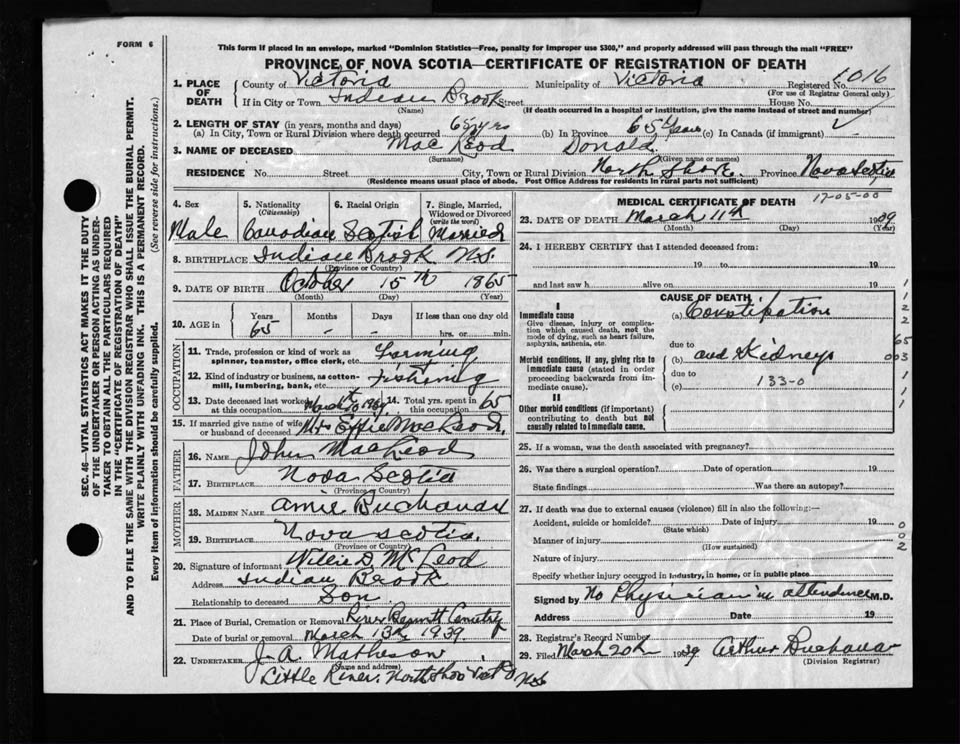 FORM 6
This form if placed in an envelope, marked "Dominion Statistics—Free, penalty for improper use $300," and properly addressed will pass through the mail "FREE"
PROVINCE OF NOVA SCOTIA—CERTIFICATE OF REGISTRATION OF DEATH
SEC. 46—VITAL STATISTICS ACT MAKES IT THE DUTY
OF THE UNDERTAKER OR PERSON ACTING AS UNDER-
TAKER TO OBTAIN ALL THE PARTICULARS REQUIRED
IN THE "CERTIFICATE OF REGISTRATION OF DEATH"
AND TO FILE THE SAME WITH THE DIVISION REGISTRAR WHO SHALL ISSUE THE BURIAL PERMIT.
WRITE PLAINLY WITH UNFADING INK. THIS IS A PERMANENT RECORD.
Every item of information should be carefully supplied. (See reverse side for instructions.)
1. PLACE OF DEATH
County of Victoria Municipality of Victoria Registered No. 1016
(For use of Registrar General only)
If in City or Town Indian Brook Street House No.
(Name) (If death occurred in a hospital or institution, give the name instead of street and number)
2. LENGTH OF STAY (in years, months and days)
(a) In City, Town or Rural Division where death occurred 65 yrs (b) In Province 65 Years (c) In Canada (if immigrant)
3. NAME OF DECEASED Mac Leod Donald
(Surname) (Given name or names)
RESIDENCE No. Street City, Town or Rural Division North Shore. Province Nova Scotia
(Residence means usual place of abode. Post Office Address for residents in rural parts not sufficient)
4. Sex 5. Nationality (Citizenship) 6. Racial Origin 7. Single, Married, Widowed or Divorced (write the word)
Male Canadian Scotish Married
8. BIRTHPLACE Indian Brook N.S.
(Province or Country)
9. DATE OF BIRTH October 15th 1865
(Month) (Day) (Year)
10. AGE in Years Months Days If less than one day old
65 - - hrs. or min.
OCCUPATION
11. Trade, profession or kind of work as spinner, teamster, office clerk, etc. Farming
12. Kind of industry or business, as cotton-mill, lumbering, bank, etc. Fishing
13. Date deceased last worked at this occupation March 1939 14. Total yrs. spent in this occupation 65
15. If married give name of wife or husband of deceased Mrs Effie MacLeod.
FATHER
16. Name John MacLeod
17. Birthplace Nova Scotia
(Province or Country)
MOTHER
18. Maiden Name Annie Buchanan
19. Birthplace Nova Scotia.
(Province or Country)
20. Signature of informant Willie D. McLeod
Address Indian Brook
Relationship to deceased Son
21. Place of Burial, Cremation or Removal River Bennett Cemetry
Date of burial or removal March 13th 1939.
22. Undertaker J. A. Matheson
(Name and address)
Little River, North Shore Vict Co N.S.
MEDICAL CERTIFICATE OF DEATH
17-05-00
23. DATE OF DEATH March 11th 1939
(Month) (Day) (Year)
24. I HEREBY CERTIFY that I attended deceased from:
19 to 19
and last saw h alive on 19
CAUSE OF DEATH
I
Immediate cause
Give disease, injury or complication which caused death, not the mode of dying, such as heart failure, asphyxia, asthenia, etc.
(a) Constipation
due to
Morbid conditions, if any, giving rise to immediate cause (stated in order proceeding backwards from immediate cause).
(b) and Kidneys
due to
(c) 133-0
II
Other morbid conditions (if important) contributing to death but not causally related to immediate cause.
1
1
2
2
65
003
1
1
1
25. If a woman, was the death associated with pregnancy?
26. Was there a surgical operation? Date of operation 19
State findings Was there an autopsy?
27. If death was due to external causes (violence) fill in also the following:—
Accident, suicide or homicide? Date of injury 19
(State which)
Manner of injury
(How sustained)
Nature of injury
0
0
2
Specify whether injury occurred in industry, in home, or in public place
Signed by No Physician in attendance M.D.
Address Date 19
28. Registrar's Record Number
29. Filed March 20th 1939 Arthur Buchanan
(Division Registrar)